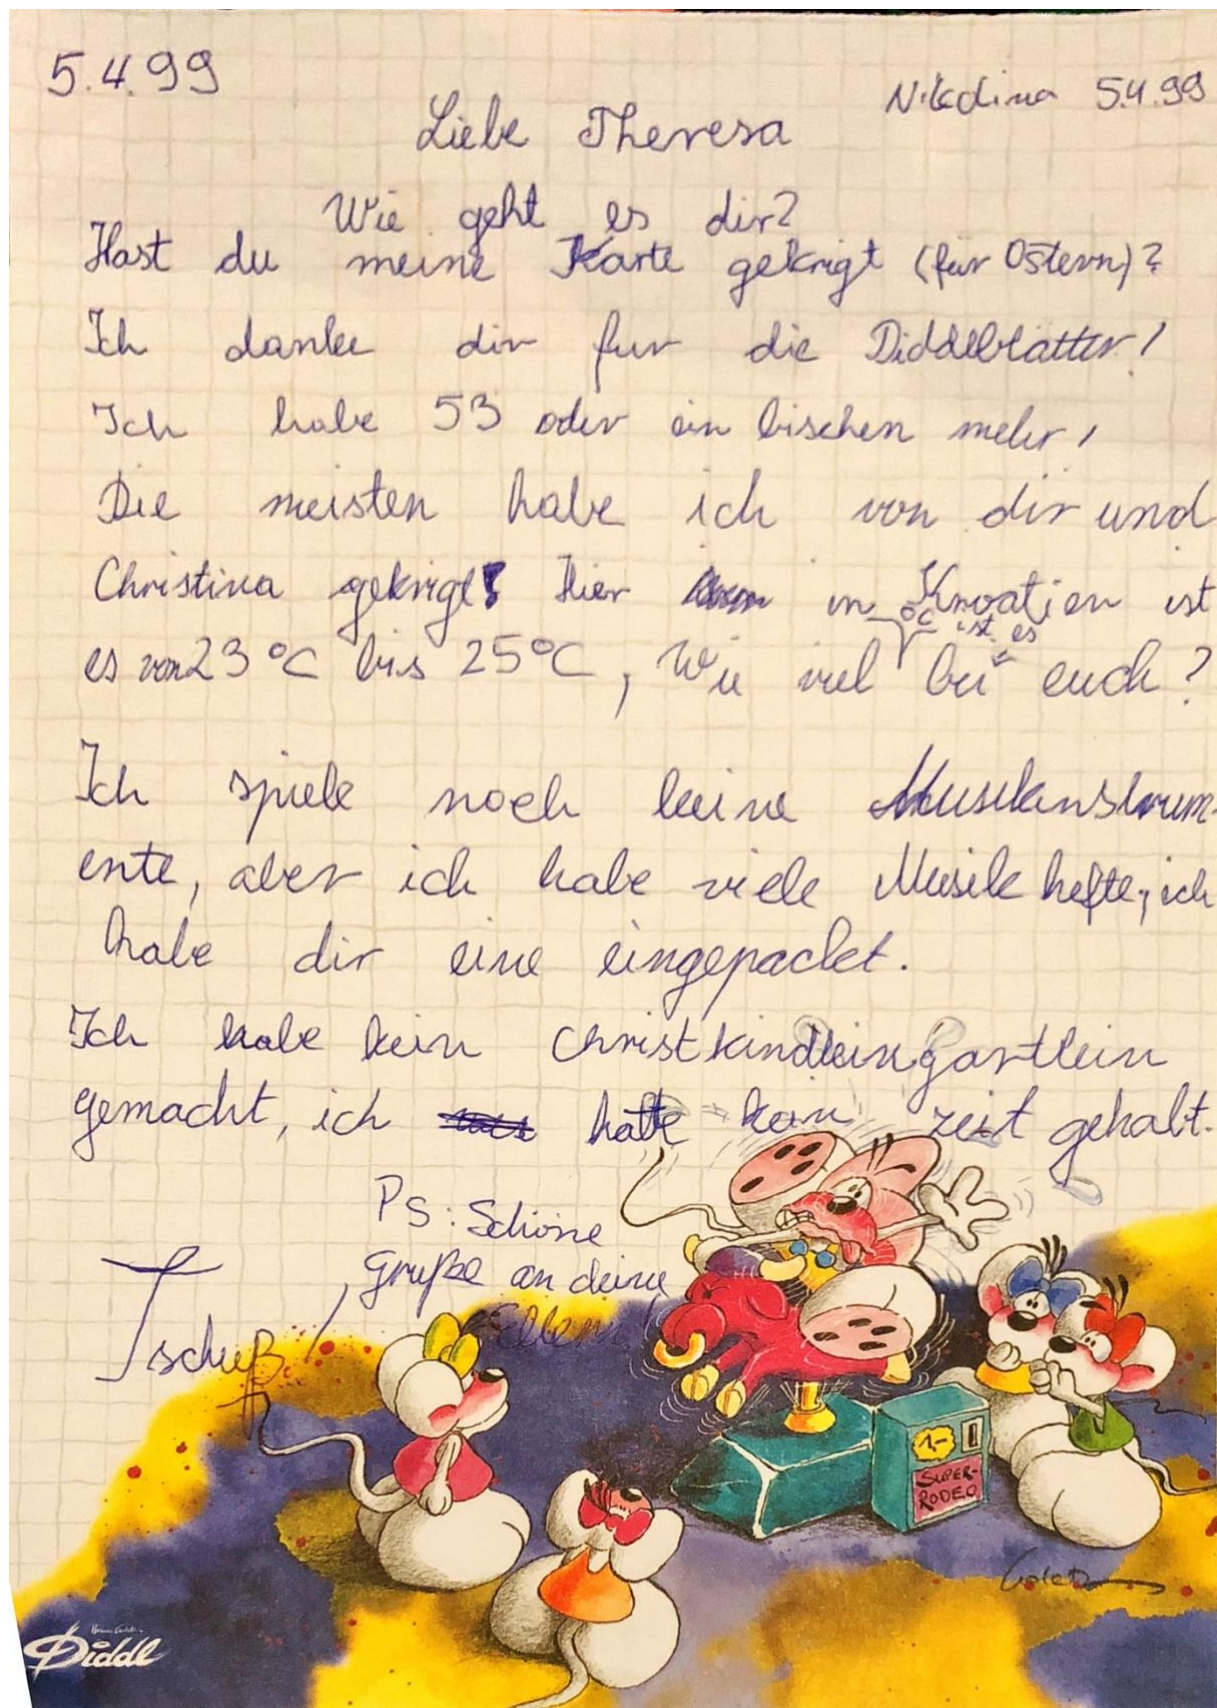 5.4.99
5.4.99
Liebe Theresa
Wie geht es dir?
Hast du meine Karte gekrigt (für Ostern)?
Ich danke dir fur die Diddelblätter!
Ich habe 53 oder ein bischen mehr!
Die meisten habe ich von dir und
Christina gekrigt! Hier in Kroatien ist
es von 23°C bis 25°C, Wie viel °C ist es bei euch?
Ich spiele noch keine Musikinstrum-
ente, aber ich habe viele Musik hefte, ich
habe dir eine eingepacket.
Ich habe kein Christkindleingartlein
gemacht, ich hatte kein zeit gehabt.
PS: Schöne
Gruße an deine
Eltern!
Tschuß!
1,-
SUPER-
RODEO
Diddl